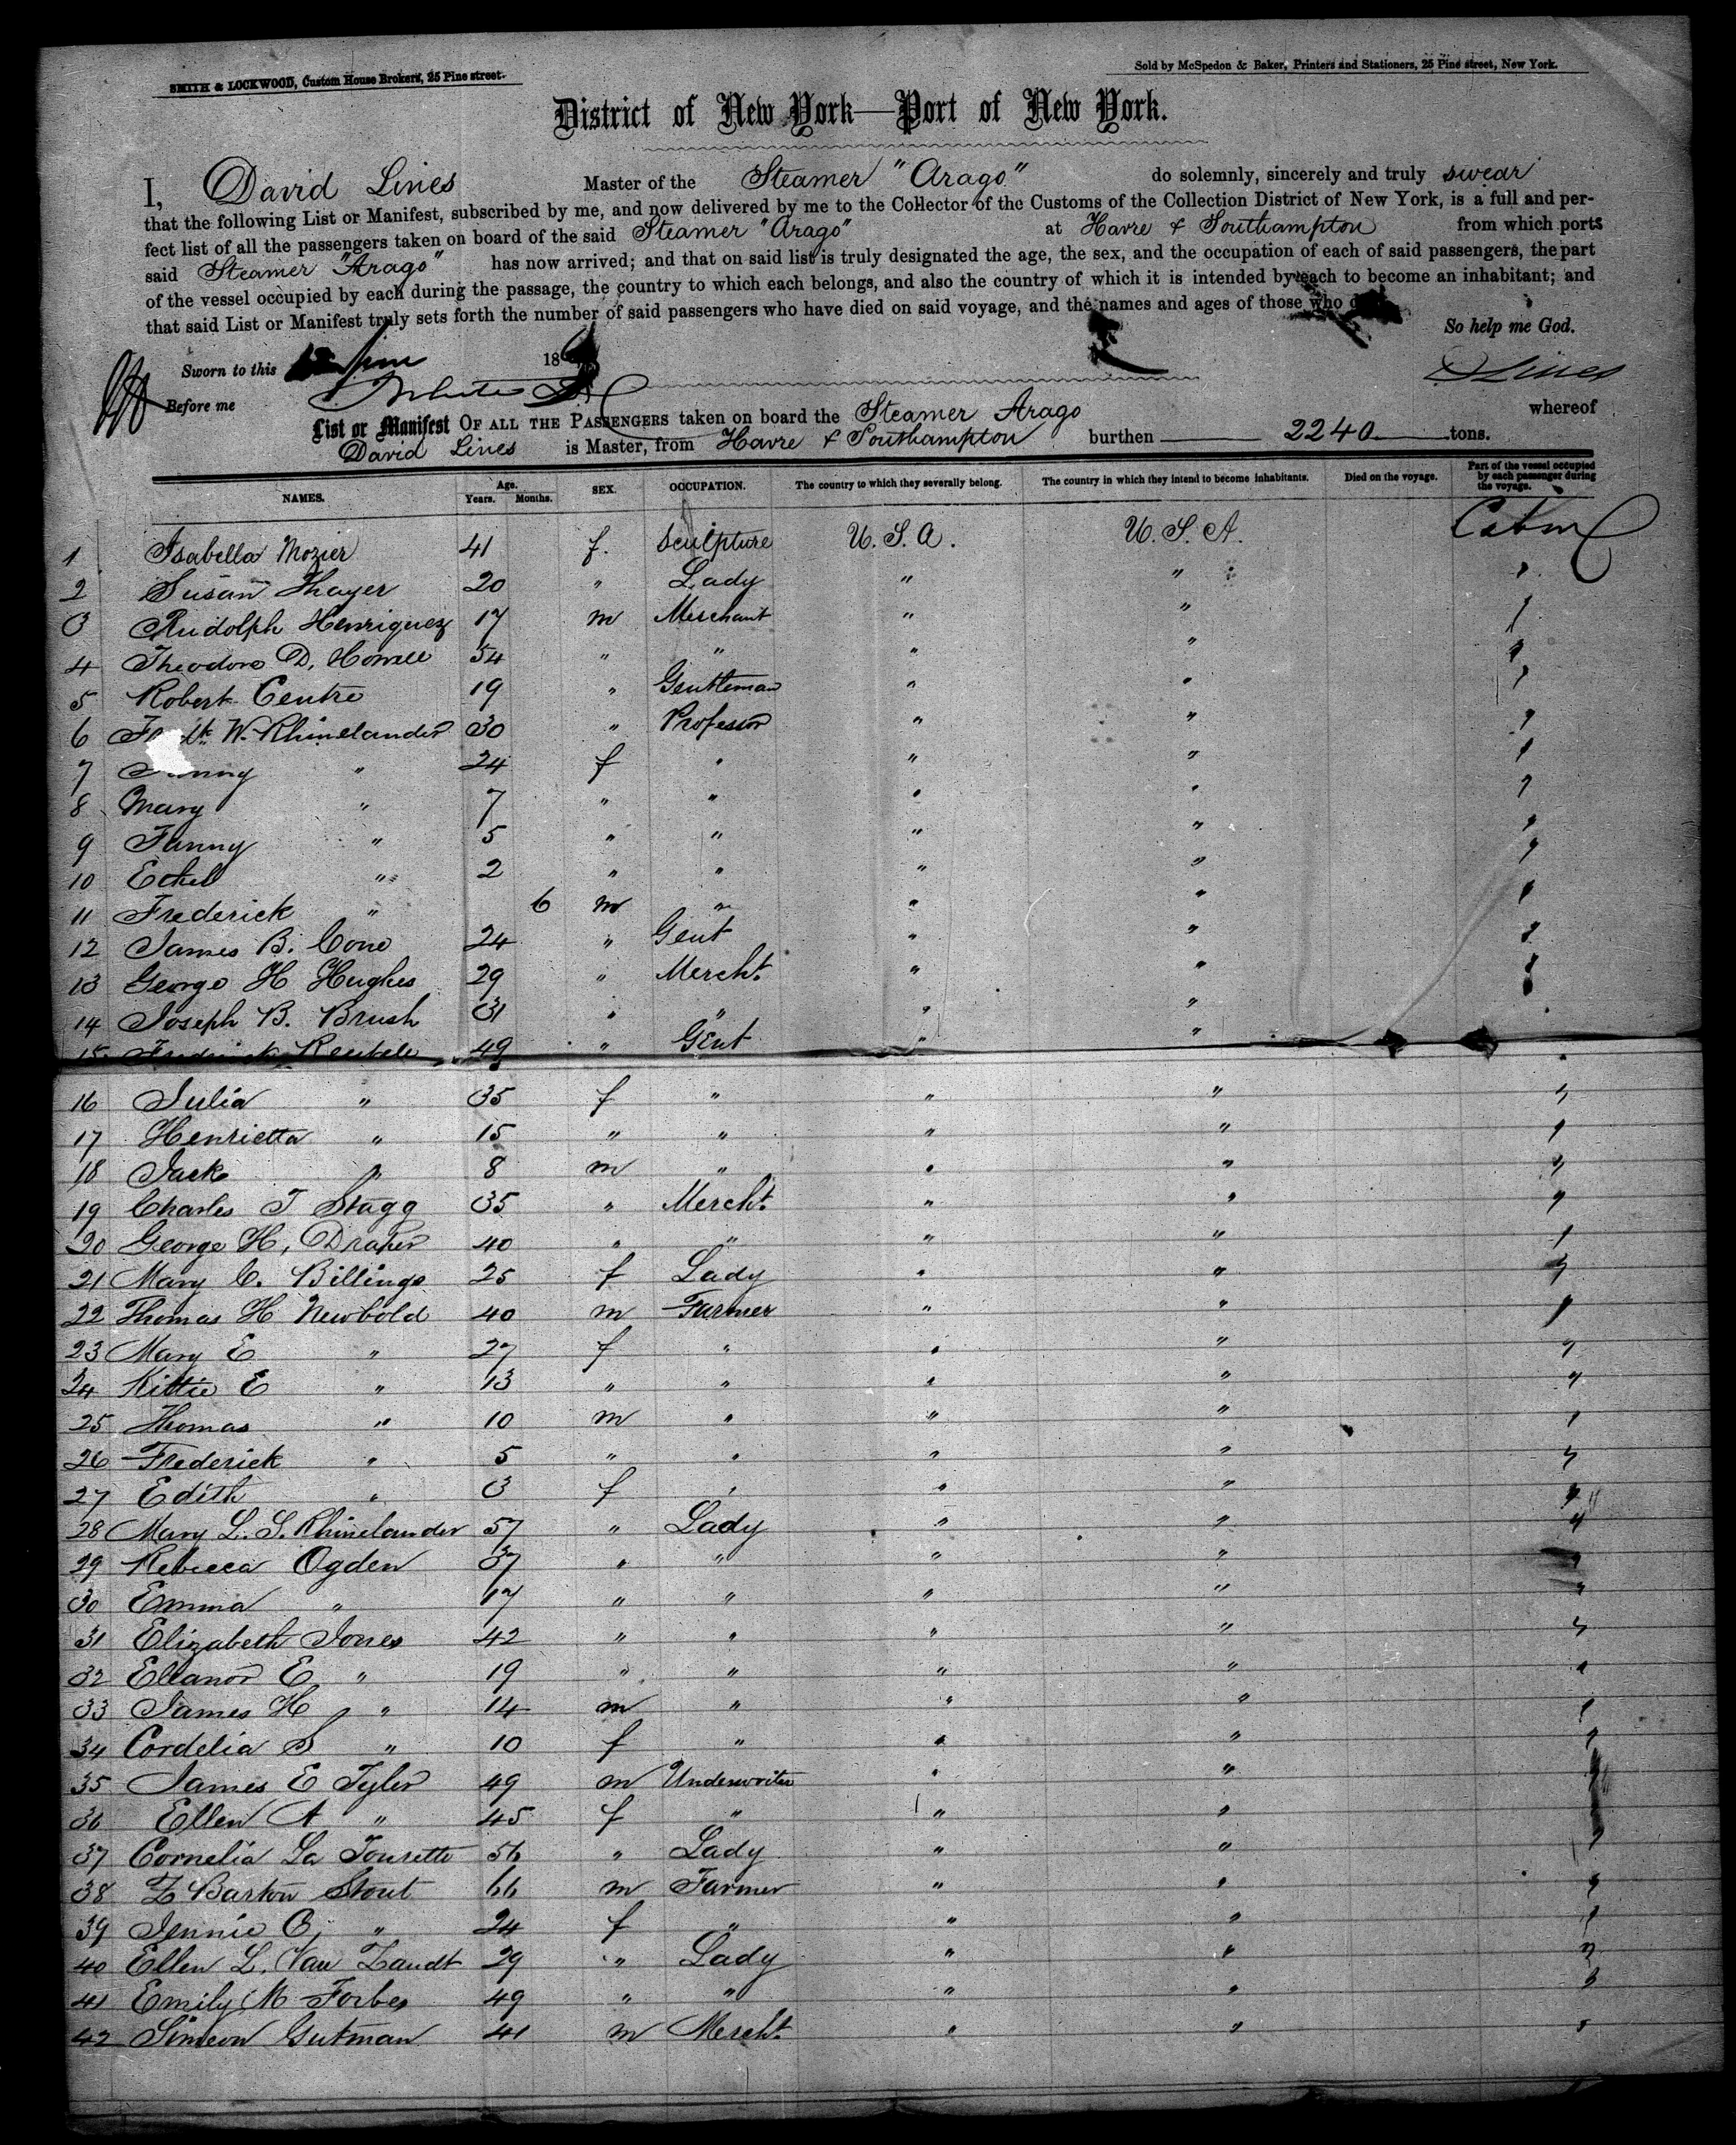 SMITH & LOCKWOOD, Custom House Brokers, 25 Pine street.
Sold by McSpedon & Baker, Printers and Stationers, 25 Pine street, New York.
District of New York—Port of New York.
I, David Lines Master of the Steamer "Arago" do solemnly, sincerely and truly swear
that the following List or Manifest, subscribed by me, and now delivered by me to the Collector of the Customs of the Collection District of New York, is a full and per-
fect list of all the passengers taken on board of the said Steamer "Arago" at Havre & Southampton from which ports
said Steamer "Arago" has now arrived; and that on said list is truly designated the age, the sex, and the occupation of each of said passengers, the part
of the vessel occupied by each during the passage, the country to which each belongs, and also the country of which it is intended by each to become an inhabitant; and
that said List or Manifest truly sets forth the number of said passengers who have died on said voyage, and the names and ages of those who
So help me God.
Sworn to this 18
D Lines
Before me
List or Manifest OF ALL THE PASSENGERS taken on board the Steamer Arago whereof
David Lines is Master, from Havre & Southampton burthen 2240 tons.
NAMES. Age. Years. Months. SEX. OCCUPATION. The country to which they severally belong. The country in which they intend to become inhabitants. Died on the voyage. Part of the vessel occupied by each passenger during the voyage.
1 Isabella Mozier 41 f. Sculpture U.S.A. U.S.A. Cabin
2 Susan Thayer 20 " Lady " " "
3 Rudolph Henriquez 17 m Merchant " " "
4 Theodore D. Howell 54 " " " " "
5 Robert Centre 19 " Gentleman " " "
6 W. Rhinelander 30 " Professor " " "
7 " 24 f " " " "
8 Mary " 7 " " " " "
9 Fanny " 5 " " " " "
10 Ethel " 2 " " " " "
11 Frederick " 6 m " " " "
12 James B. Cone 24 " Gent " " "
13 George H Hughes 29 " Mercht. " " "
14 Joseph B. Brush 31 " " " " "
15 49 " Gent " " "
16 Julia " 35 f " " " "
17 Henrietta " 15 " " " " "
18 Jack " 8 m " " " "
19 Charles T Stagg 35 " Mercht. " " "
20 George H, Draper 40 " " " " "
21 Mary C. Billings 25 f Lady " " "
22 Thomas H Newbold 40 m Farmer " " "
23 Mary E " 27 f " " " "
24 Kittie E " 13 " " " " "
25 Thomas " 10 m " " " "
26 Frederick " 5 " " " " "
27 Edith " 3 f " " " "
28 Mary L. S. Rhinelander 57 " Lady " " "
29 Rebecca Ogden 37 " " " " "
30 Emma " 17 " " " " "
31 Elizabeth Jones 42 " " " " "
32 Elleanor E " 19 " " " " "
33 James H " 14 m " " " "
34 Cordelia S " 10 f " " " "
35 James E Tyler 49 m Underwriter " " "
36 Ellen A " 45 f " " " "
37 Cornelia La Tourette 56 " Lady " " "
38 Z Barton Stout 66 m Farmer " " "
39 Jennie O, " 24 f " " " "
40 Ellen L. Van Zandt 29 " Lady " " "
41 Emily M Forbes 49 " " " " "
42 Simeon Gutman 41 m Mercht. " " "